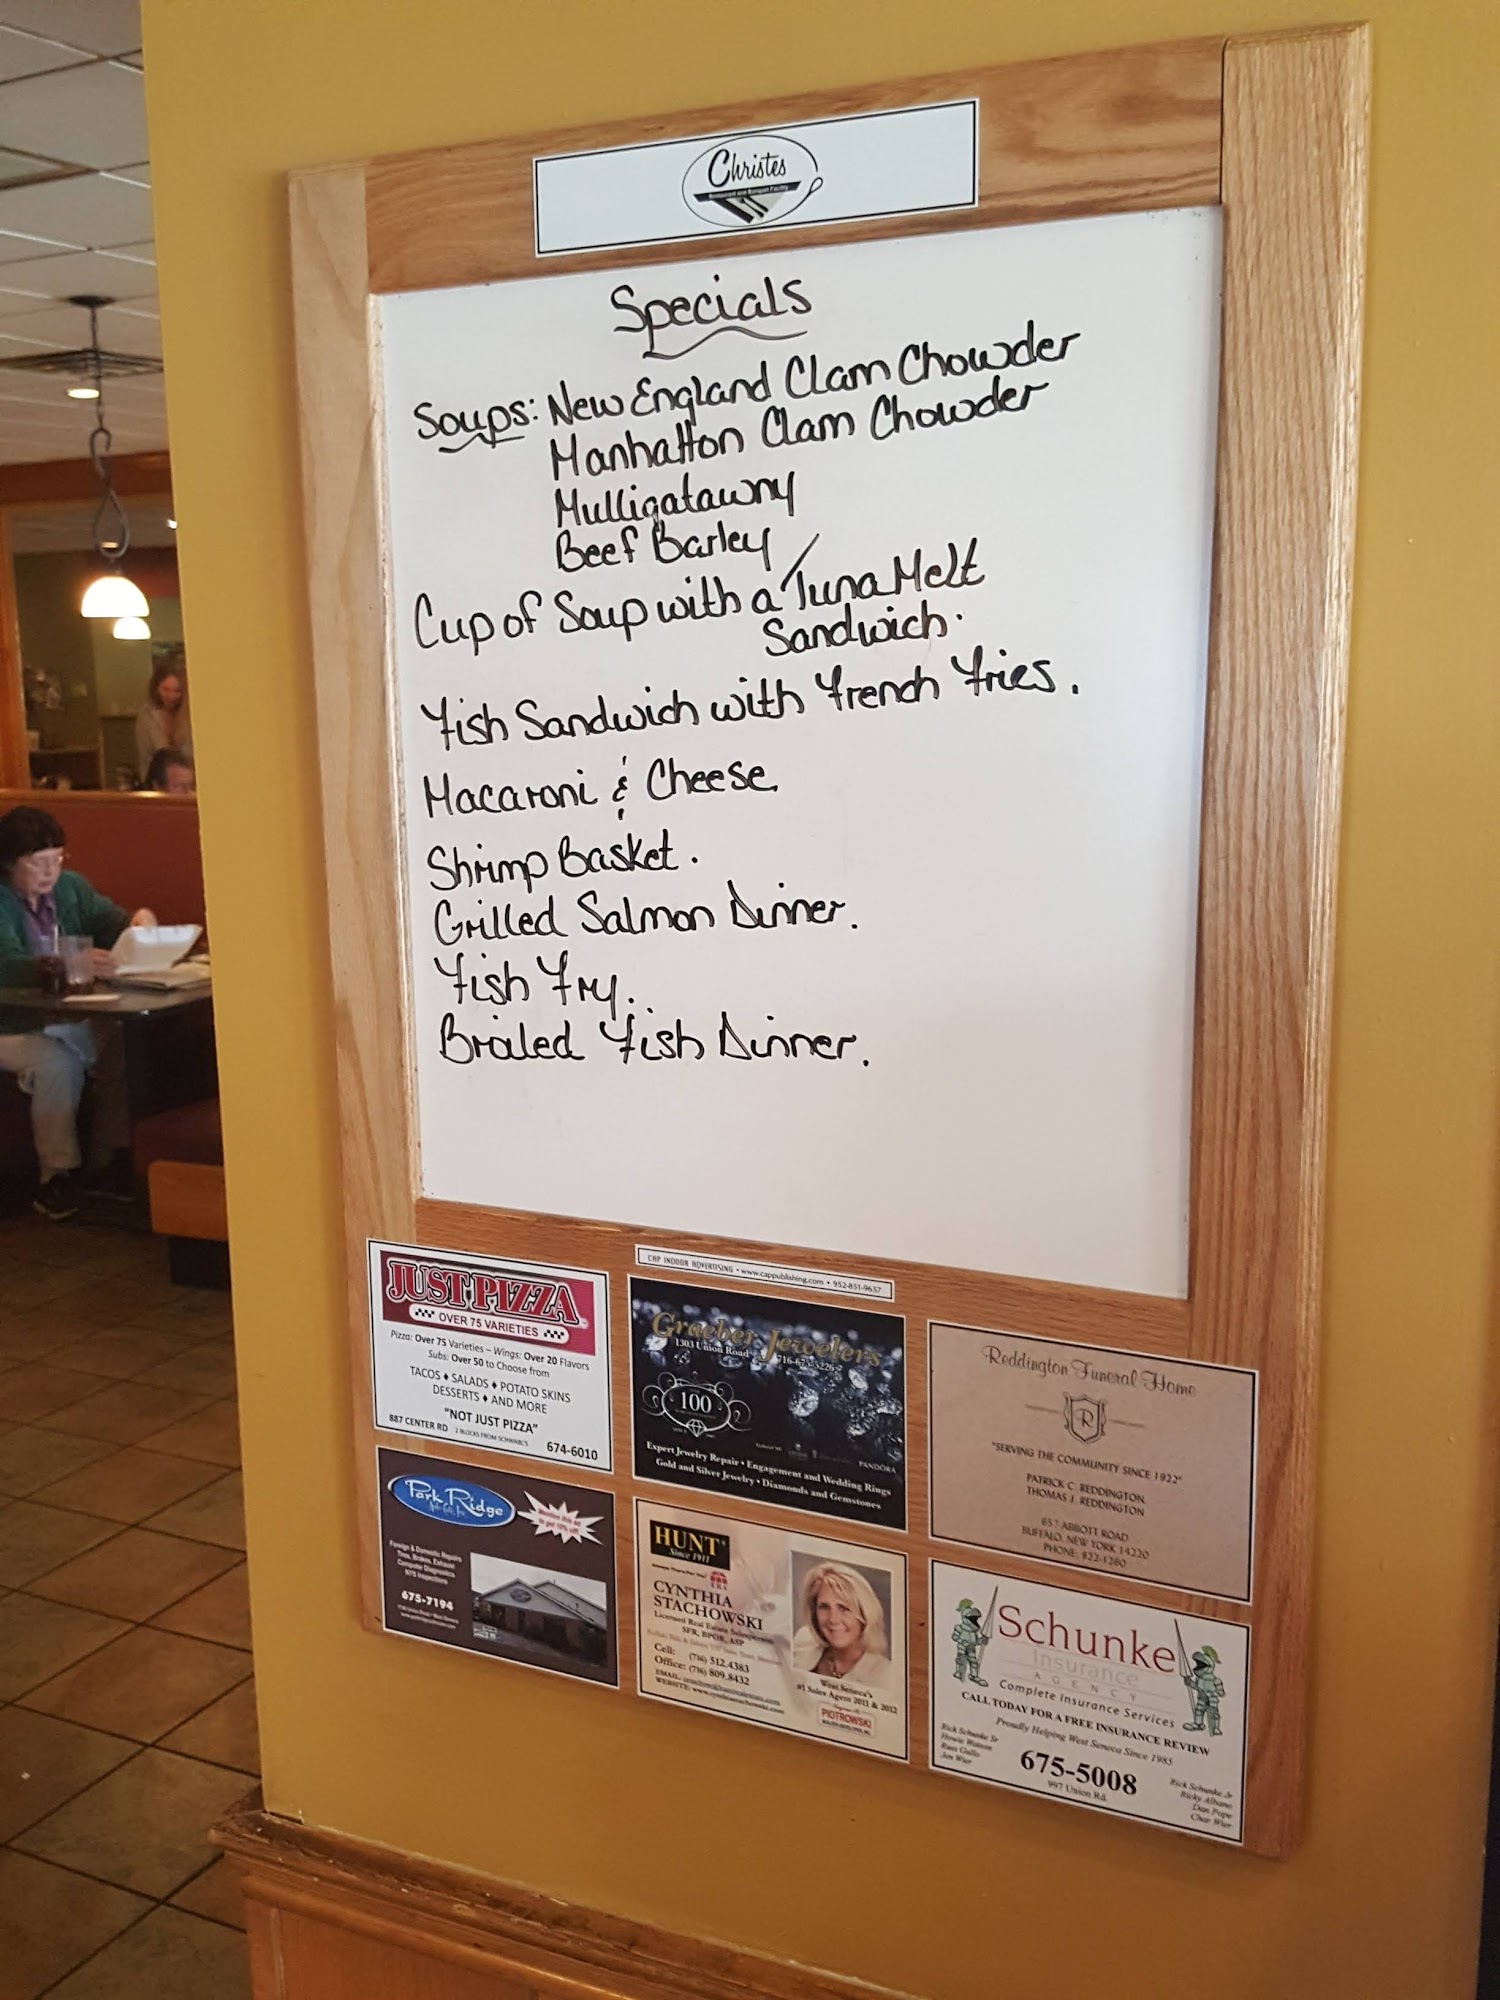 Christes
Restaurant and Banquet Facility
Specials
Soups: New England Clam Chowder
Manhatton Clam Chowder
Mulligatawny
Beef Barley
Cup of Soup with a Tuna Melt
Sandwich.
Fish Sandwich with French Fries.
Macaroni & Cheese
Shrimp Basket.
Grilled Salmon Dinner.
Fish Fry.
Brialed Fish Dinner.
CAP INDOOR ADVERTISING • www.cappublishing.com • 952-851-9657
JUST PIZZA
OVER 75 VARIETIES
Pizza: Over 75 Varieties – Wings: Over 20 Flavors
Subs: Over 50 to Choose from
TACOS ♦ SALADS ♦ POTATO SKINS
DESSERTS ♦ AND MORE
"NOT JUST PIZZA"
887 CENTER RD 2 BLOCKS FROM SCHWABL'S 674-6010
Graeber Jewelers
1303 Union Road 716-675-5226
100
PANDORA
Expert Jewelry Repair • Engagement and Wedding Rings
Gold and Silver Jewelry • Diamonds and Gemstones
Reddington Funeral Home
R
"SERVING THE COMMUNITY SINCE 1922"
PATRICK C. REDDINGTON
THOMAS J. REDDINGTON
657 ABBOTT ROAD
BUFFALO, NEW YORK 14220
PHONE: 822-1260
Park Ridge
Mention this ad
to get 10% off!
Foreign & Domestic Repairs
Tires, Brakes, Exhaust
Computer Diagnostics
NYS Inspections
675-7194
HUNT
Since 1911
ERA
CYNTHIA
STACHOWSKI
Licensed Real Estate Salesperson
SFR, BPOR, ASP
Cell: (716) 512.4383
Office: (716) 809.8432
West Seneca's
#1 Sales Agent 2011 & 2012
PIOTROWSKI
Schunke
Insurance
AGENCY
Complete Insurance Services
CALL TODAY FOR A FREE INSURANCE REVIEW
Proudly Helping West Seneca Since 1985
Rick Schunke Sr
Howie Watson
Russ Gullo
Jen Wier
675-5008
997 Union Rd.
Rick Schunke Jr
Ricky Albano
Dan Pope
Char Wier